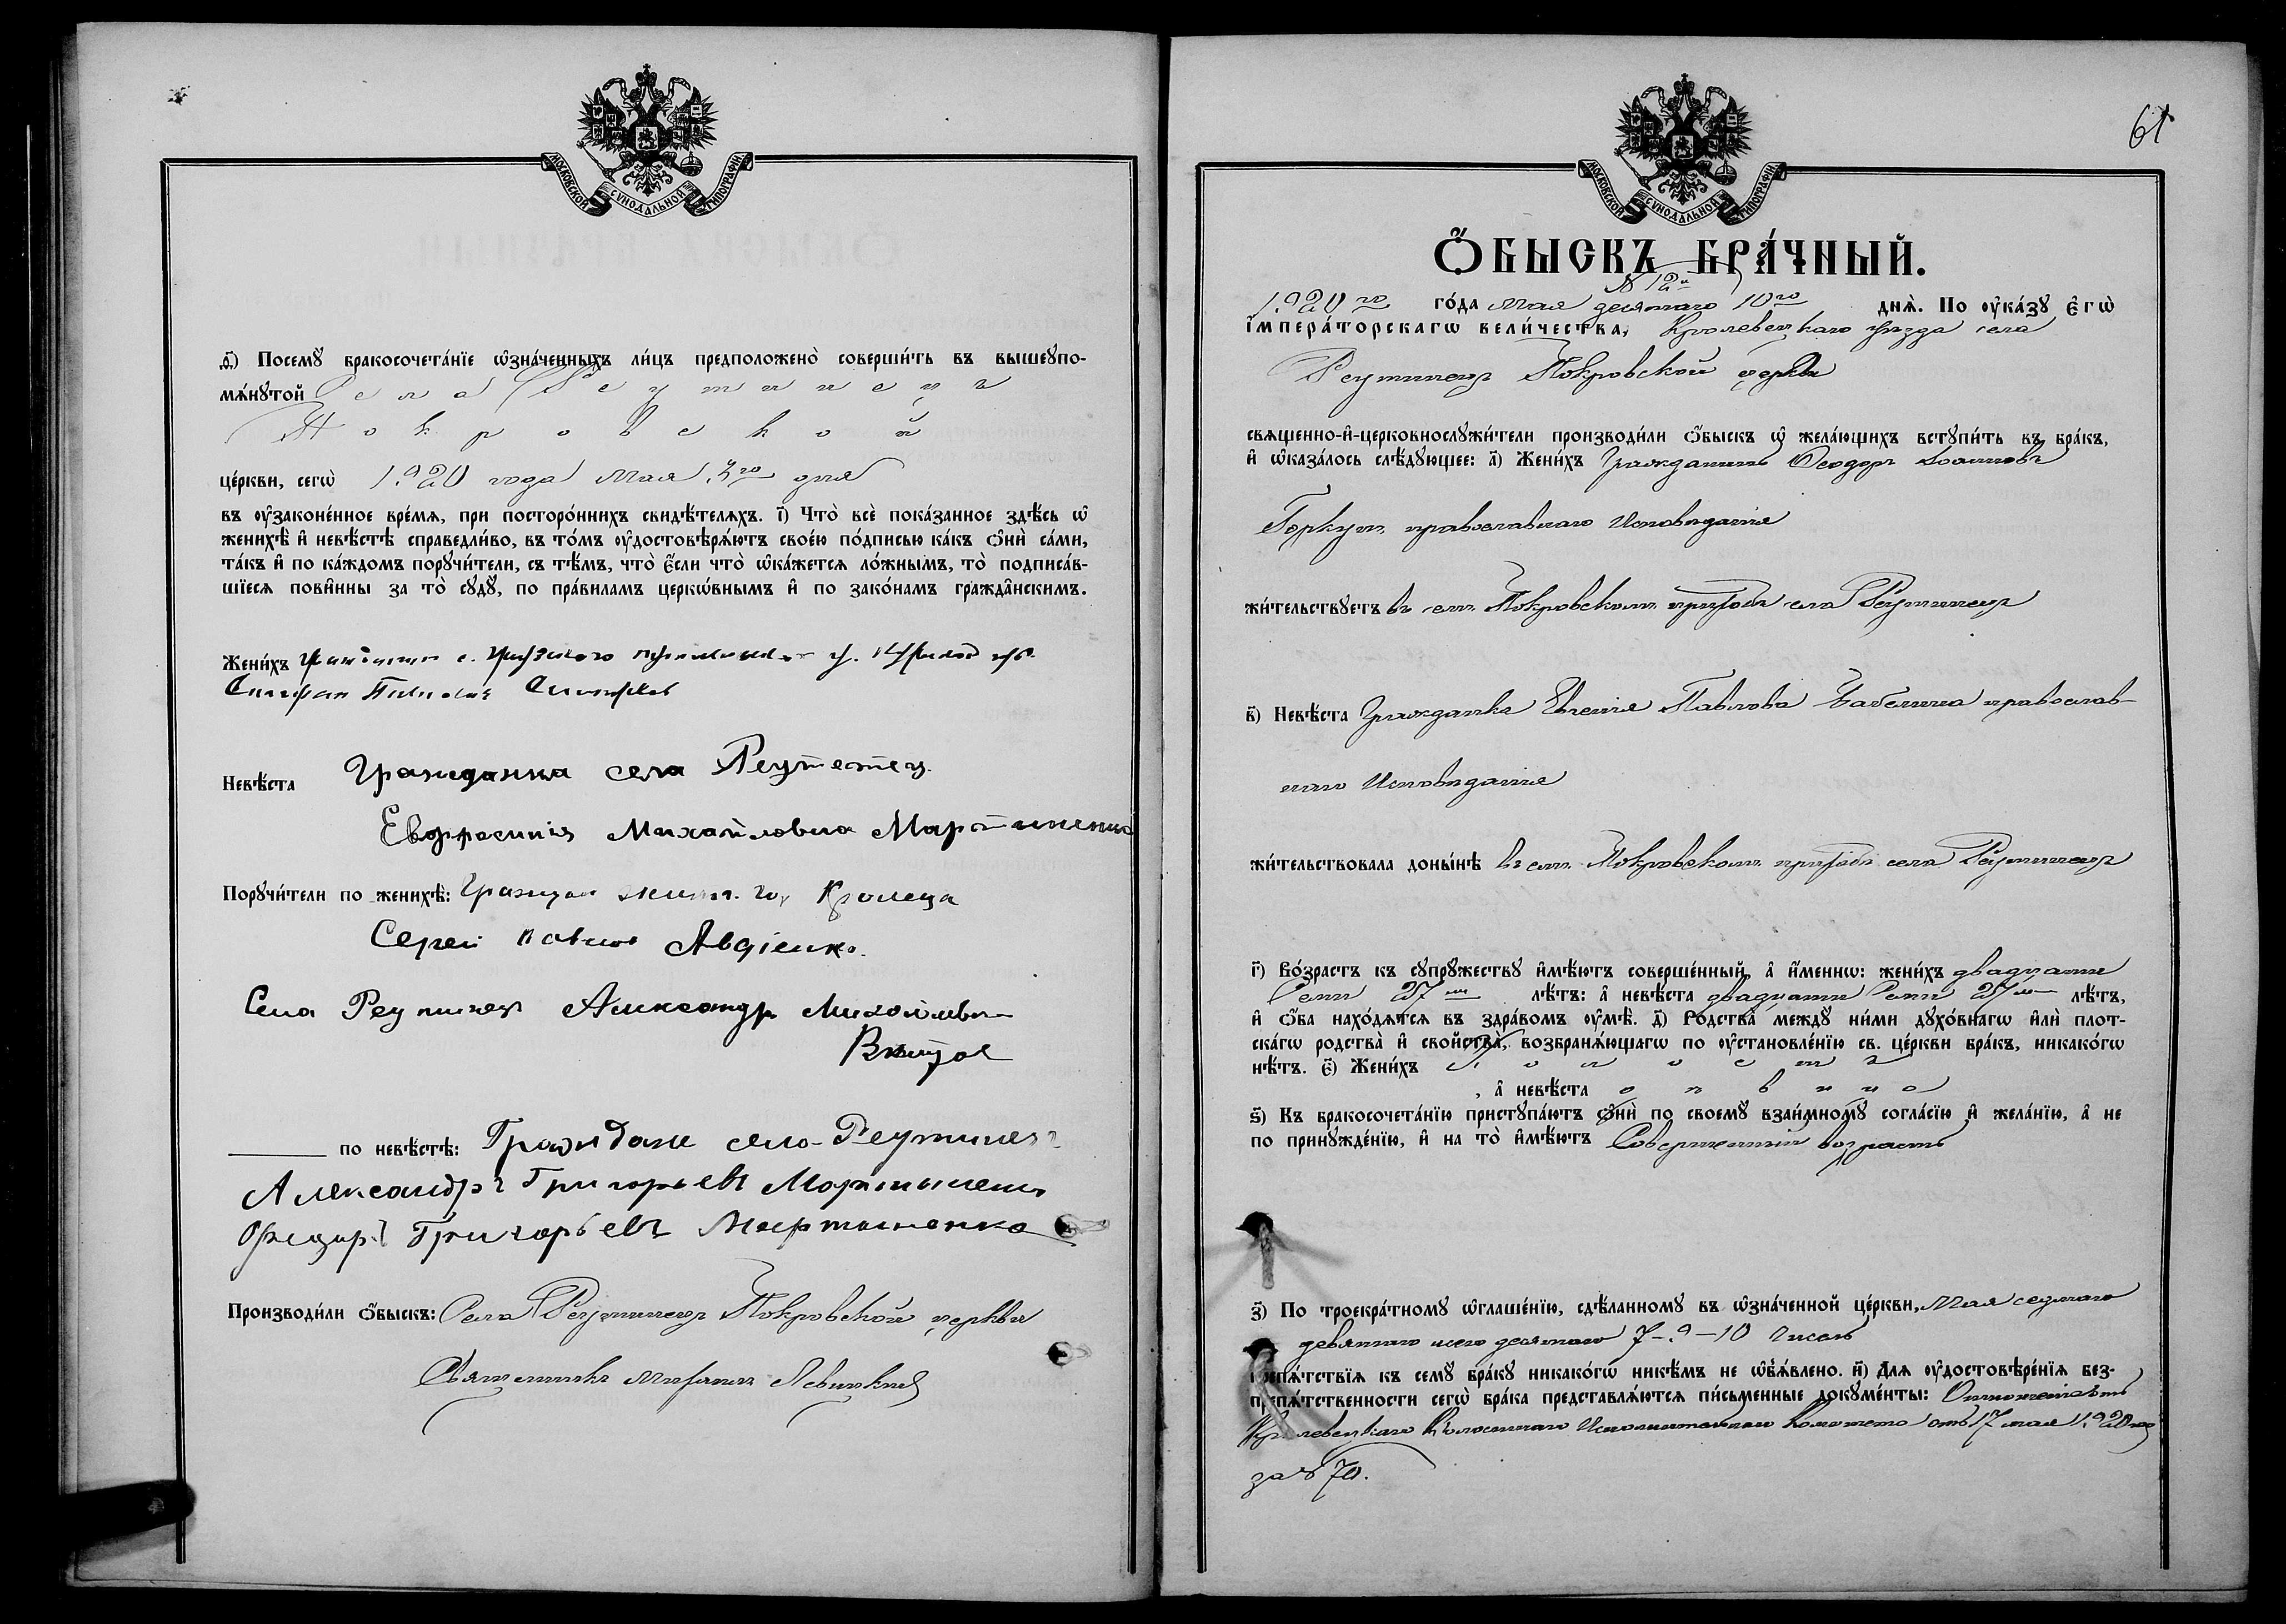 МОСКОВСКОЙ СѴНОДАЛЬНОЙ ТИПОГРАФІИ
д҃і) Посемꙋ̀ бракосочета́нїе ѡ҆зна́ченныхъ ли́цъ предположено̀ соверши́ть въ вышеꙋпо-
мѧ́нꙋтой Села Реутинецъ
Покровской
це́ркви, сегѡ̀ 1920 года Мая 3го дня
въ оу҆законе́нное вре́мѧ, при посторо́ннихъ свидѣ́телѧхъ. і҃) Что̀ всѐ пока́занное здѣ́сь ѡ҆
женихѣ̀ и҆ невѣ́стѣ справедли́во, въ то́мъ оу҆достовѣрѧ́ютъ свое́ю по́дписью ка́къ ѻ҆нѝ са́ми,
та́къ и҆ по ка́ждомъ порꙋчи́тели, съ тѣ́мъ, что̀ є҆́сли что̀ ѡ҆ка́жетсѧ ло́жнымъ, то̀ подписа́в-
шїесѧ пови́нны за то̀ сꙋдꙋ̀, по пра́виламъ церко́внымъ и҆ по зако́намъ гражда́нскимъ.
Жени́хъ
Невѣ́ста Гражданка села Реутенец
Евфросинія Михайловна Мартиненко
Порꙋчи́тели по женихѣ̀: Кролевца
Сергеи Павлов Авдіенко.
Села Реутинец Александр Михайлович
по невѣ́стѣ: Граждане села Реутинец
Александръ Григорьевъ Мартыненко
Федиръ Григорьевъ Мартыненко
Производи́ли ѻ҆́быскъ: Села Реутинецъ Покровской церкви
Священникъ Левицкий
61
МОСКОВСКОЙ СѴНОДАЛЬНОЙ ТИПОГРАФІИ
Ѻ҆́БЫСКЪ БРА́ЧНЫЙ.
№ 12й
1920го го́да Мая десятаго 10го днѧ̀. По оу҆ка́зꙋ є҆гѡ̀
і҆мпера́торскагѡ вели́чества, Кролевецкаго уезда села
Реутинецъ Покровской церкви
свѧщенно-и҆-церковнослꙋжи́тели производи́ли ѻ҆́быскъ ѡ҆ жела́ющихъ встꙋпи́ть въ бра́къ,
и҆ ѡ҆каза́лось слѣ́дꙋющее: а҃) Жени́хъ Гражданинъ Феодоръ Іоанновъ
православнаго Исповѣданія
жи́тельствꙋетъ въ семъ Покровскомъ приходѣ села Реутинецъ
в҃) Невѣ́ста Гражданка Павлова православ-
наго Исповѣданія
жи́тельствовала доны́нѣ въ семъ Покровскомъ приходѣ села Реутинецъ
г҃) Во́зрастъ къ сꙋпрꙋ́жествꙋ и҆мѣ́ютъ соверше́нный, а҆ и҆́меннѡ: жени́хъ двадцати
Семи 27ми лѣ́тъ: а҆ невѣ́ста двадцати Семи 27ми лѣ́тъ,
и҆ ѻ҆́ба нахо́дѧтсѧ въ здра́вомъ оу҆мѣ̀. д҃) Родства̀ междꙋ̀ ни́ми дꙋхо́внагѡ и҆лѝ плот-
ска́гѡ родства̀ и҆ свойства̀, возбранѧ́ющагѡ по оу҆становле́нїю св. це́ркви бра́къ, никако́гѡ
нѣ́тъ. є҃) Жени́хъ холостъ
, а҆ невѣ́ста дѣвица
ѕ҃) Къ бракосочета́нїю пристꙋпа́ютъ ѻ҆нѝ по своемꙋ̀ взаи́мномꙋ согла́сїю и҆ жела́нїю, а҆ не
по принꙋжде́нїю, и҆ на то̀ и҆мѣ́ютъ Совершенный возрастъ
з҃) По троекра́тномꙋ ѡ҆глаше́нїю, сдѣ́ланномꙋ въ ѡ҆зна́ченной це́ркви, Мая седмаго
девятаго десятаго 7-9-10 Чиселъ
препѧ́тствїѧ къ семꙋ̀ бра́кꙋ никако́гѡ никѣ́мъ не ѡ҆б̾ѧ́влено. и҃) Для оу҆достовѣре́нїѧ без-
препѧ́тственности сегѡ̀ бра́ка представлѧ́ютсѧ пи́сьменные докꙋме́нты:
Кролевецкаго Волостнаго Исполнительнаго Комитета отъ 17 мая 1920 года
за № 70.